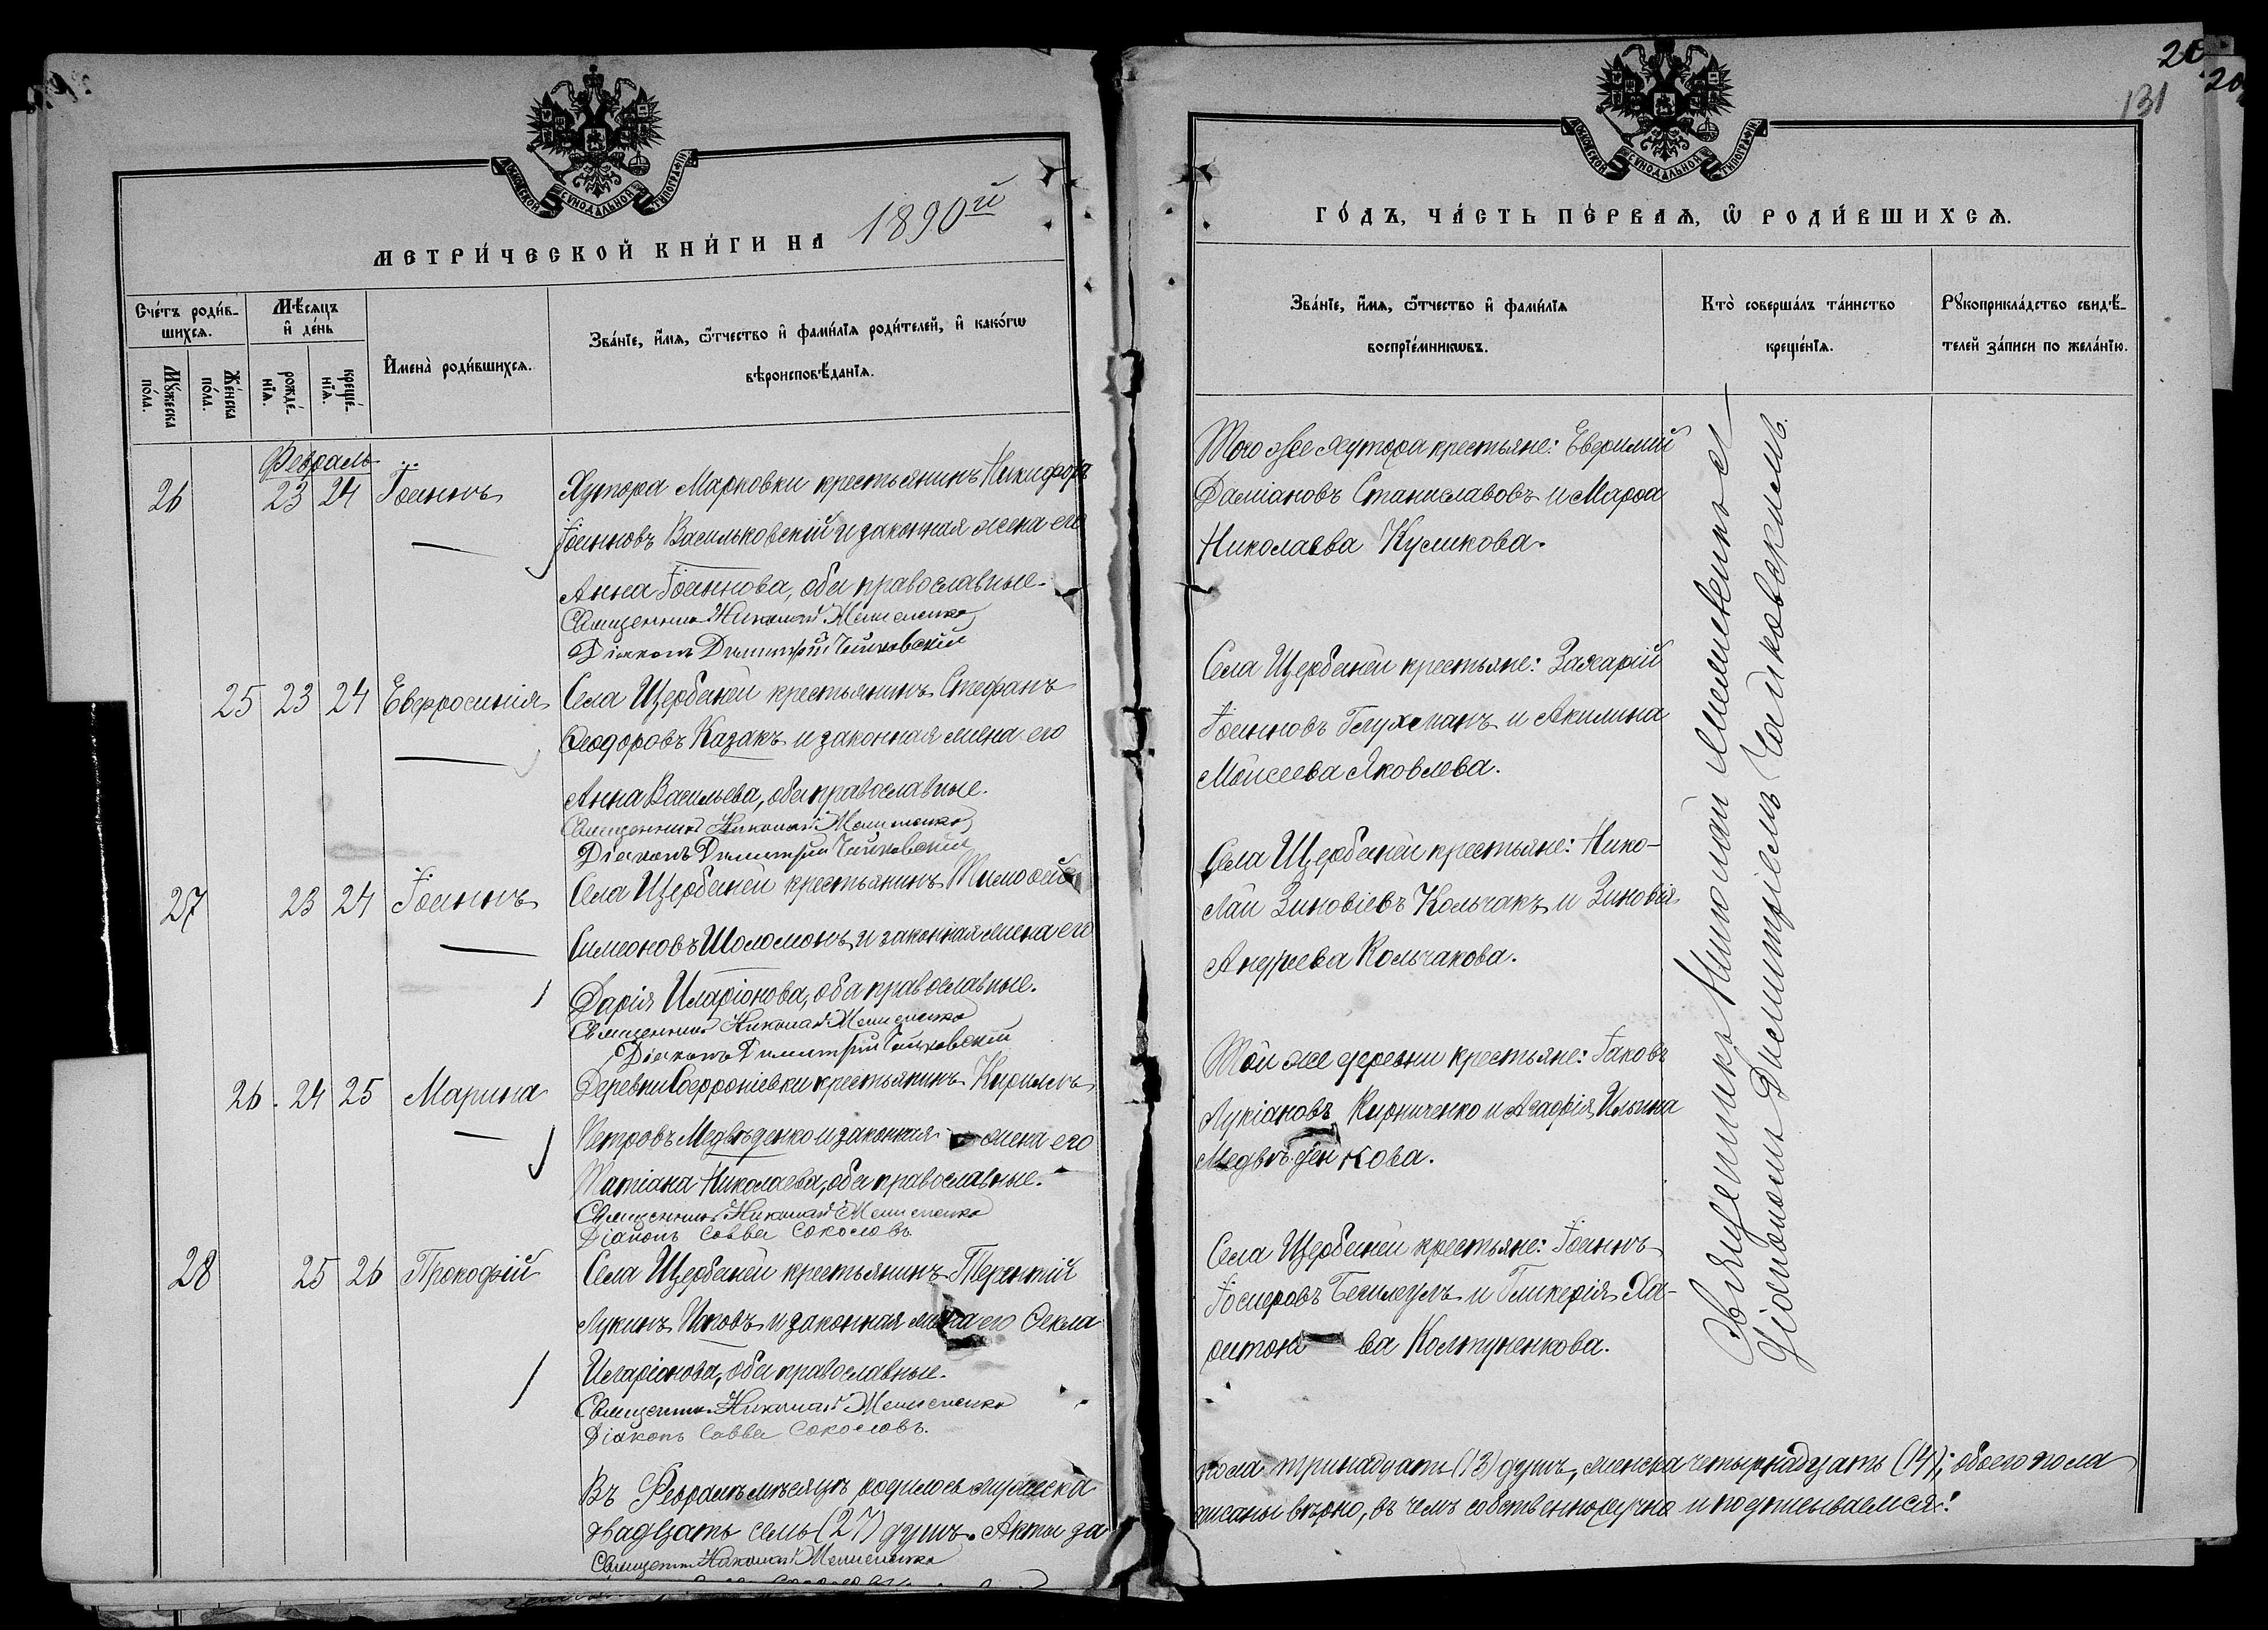 МОСКОВСКОЙ СѴНОДАЛЬНОЙ ТИПОГРАФІИ.
МЕТРИ́ЧЕСКОЙ КНИ́ГИ НА 1890й
Сче́тъ роди́в-
шихсѧ.
Мѣ́сѧцъ
и҆ де́нь
И҆мена̀ роди́вшихсѧ.
Зва́нїе, и҆́мѧ, ѻ҆́тчество и҆ фами́лїѧ роди́телей, и҆ како́гѡ
вѣроисповѣ́данїѧ.
Мꙋ́жеска
по́ла.
Же́нска
по́ла.
рожде́-
нїѧ.
креще́-
нїѧ.
Февраль
26 23 24 Іоаннъ
Хутора Марковки крестьянинъ Никифоръ
Іоанновъ Васильковскій и законная жена его
Анна Іоаннова, оба православные.
Священникъ Николай
Діаконъ Димитрій Чайковскій
25 23 24 Евфросинія
Села Щербаней крестьянинъ Стефанъ
Ѳеодоровъ Казакъ и законная жена его
Анна Васильева, оба православные.
Священникъ Николай
Діаконъ Димитрій Чайковскій
27 23 24 Іоаннъ
Села Щербаней крестьянинъ Тимоѳей
Симеоновъ Шоломонъ и законная жена его
Дарія Иларіонова, оба православные.
Священникъ Николай
Діаконъ Димитрій Чайковскій
26. 24 25 Марина
Деревни Софроніевки крестьянинъ Кириллъ
Петровъ Медвѣденко и законная жена его
Татіана Николаева, оба православные.
Священникъ Николай
Діаконъ Савва Соколовъ.
28 25 26 Прокофій
Села Щербаней крестьянинъ Терентій
Лукинъ и законная жена его Ѳекла
Иларіонова, оба православные.
Священникъ Николай
Діаконъ Савва Соколовъ.
Въ Февралѣ мѣсяцѣ родилось мужеска
двадцать семь (27) душъ. Акты за
Священникъ Николай
20
20
131
МОСКОВСКОЙ СѴНОДАЛЬНОЙ ТИПОГРАФІИ.
ГО́ДЪ, ЧА́СТЬ ПЕ́РВАѦ, Ѡ҆ РОДИ́ВШИХСѦ.
Зва́нїе, и҆́мѧ, ѻ҆́тчество и҆ фами́лїѧ
воспрїе́мникѡвъ.
Кто̀ соверша́лъ та́инство
креще́нїѧ.
Рꙋкоприкла́дство свидѣ́-
телей за́писи по жела́нїю.
Того же хутора крестьяне: Евфимій
Даміановъ Станиславовъ и Марѳа
Николаева Куликова.
Села Щербаней крестьяне: Захарій
Іоанновъ Глухманъ и Акилина
Моисеева Яковлева.
Села Щербаней крестьяне: Нико-
лай Зиновіевъ Кольчакъ и Зиновія
Андреева Кольчакова.
Той же деревни крестьяне: Іаковъ
Лукіановъ Кирниченко и Агафія Ильина
Медвѣденкова.
Села Щербаней крестьяне: Іоаннъ
Іосифовъ и Гликерія Ха-
ритонова Колтуненкова.
Священникъ Николай
Діакономъ Димитріемъ Чайковскимъ.
пола тринадцать (13) душъ, женска четырнадцать (14); обоего пола
писаны вѣрно, въ чемъ собственноручно и подписываемся: